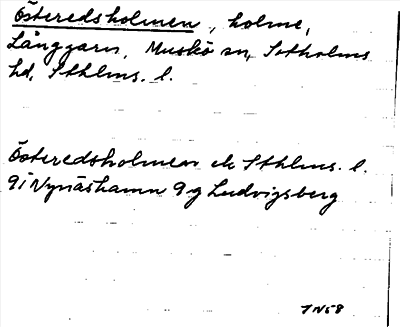 Österedsholmen, holme,
Långgarn, Muskö sn, Sotholms
hd, Sthlms. l.
Österedsholmen ek Sthlms. l.
9i Nynäshamn 9g Ludvigsberg
7N58